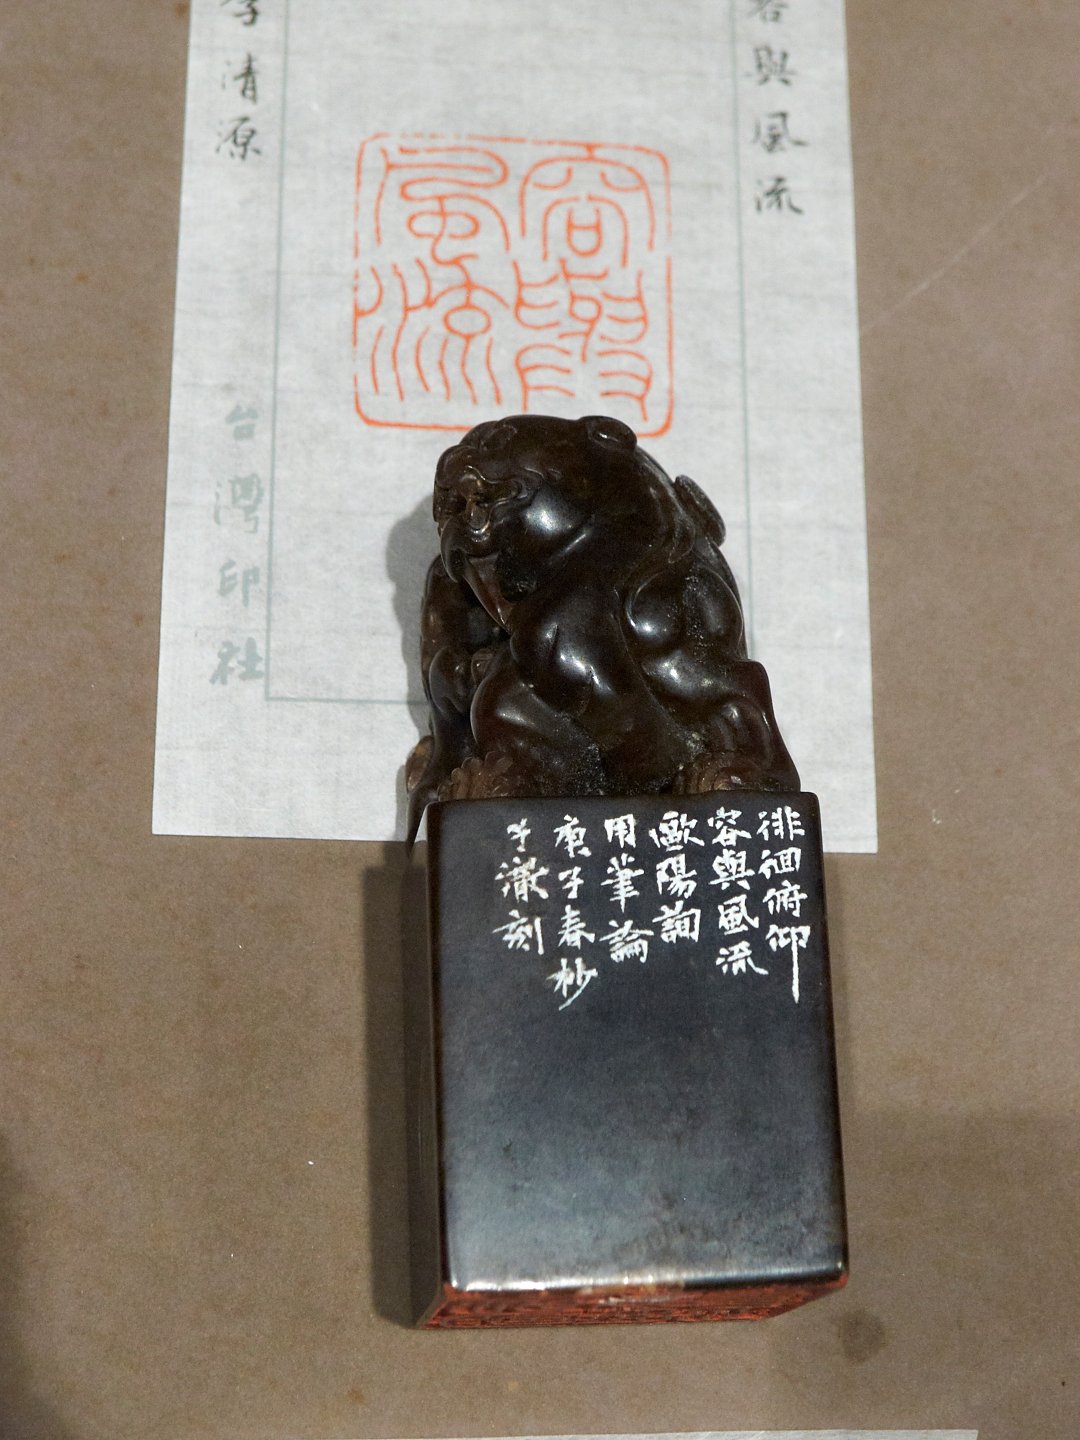 容與風流
容與風流
李清源
台灣印社
徘徊俯仰
容與風流
歐陽詢
用筆論
庚子春杪
刻